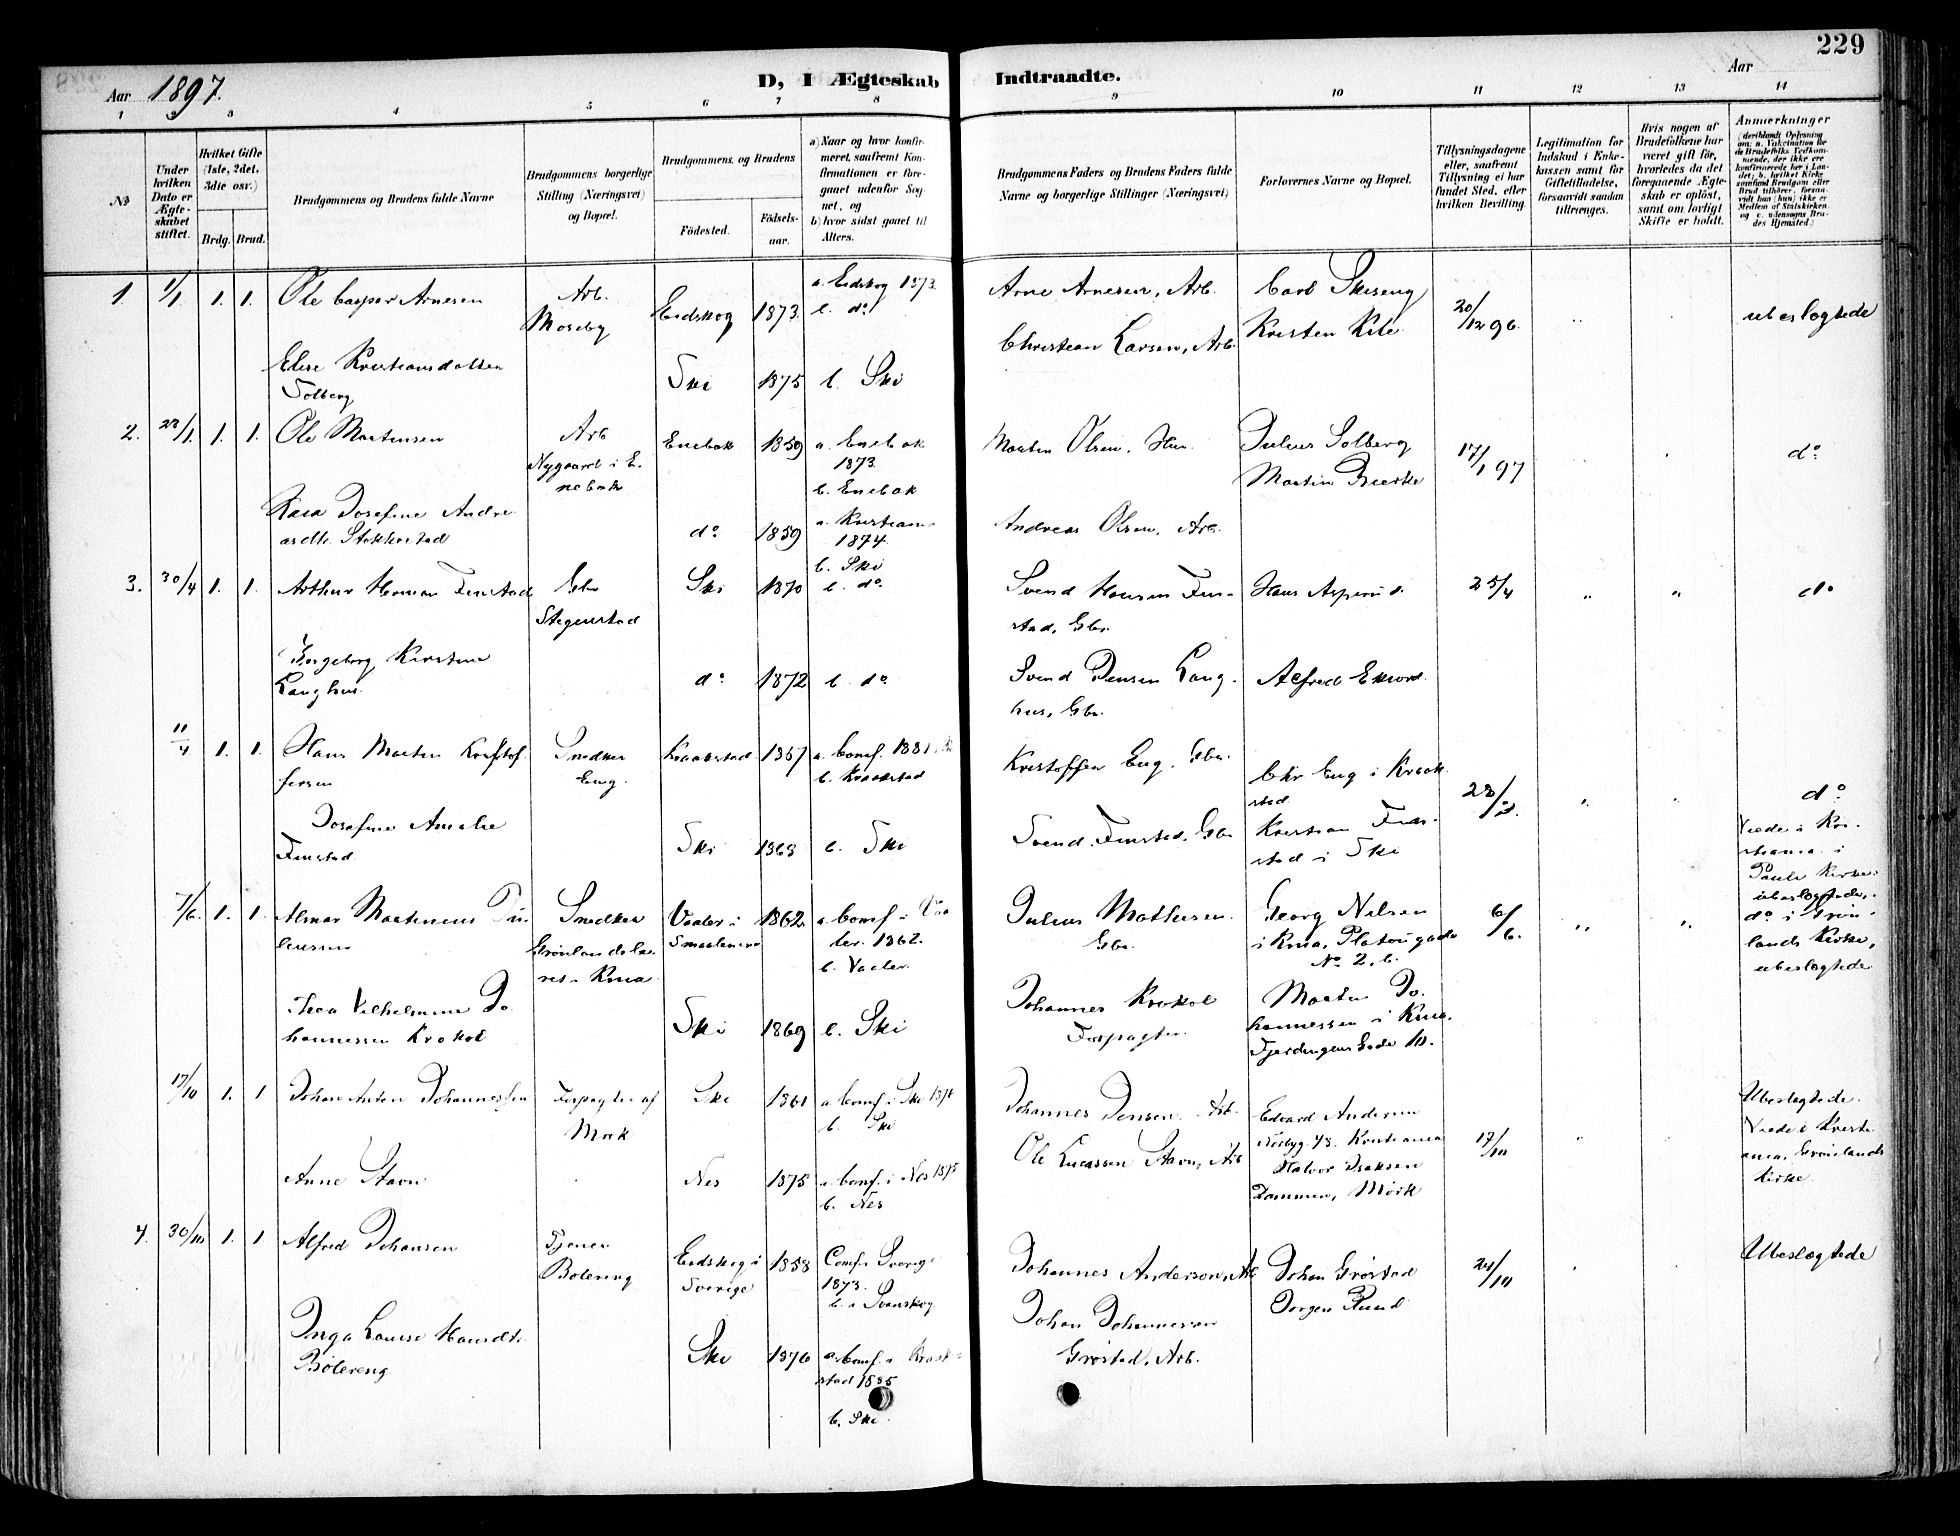 229
Aar 1897.
D, I Ægteskab Indtraadte.
Aar
1 2 3 4 5 6 7 8 9 10 11 12 13 14
No
Under hvilken Dato er Ægteskabet stiftet.
Hvilket Gifte (1ste, 2det, 3die osv.)
Brdg. Brud.
Brudgommens og Brudens fulde Navne
Brudgommens borgerlige Stilling (Næringsvei) og Bopæl.
Brudgommens og Brudens
Födested.
Födsels-aar.
a) Naar og hvor konfirmeret, saafremt Konfirmationen er foregaaet udenfor Sognet, og
b) hvor sidst gaaet til Alters.
Brudgommens Faders og Brudens Faders fulde Navne og borgerlige Stillinger (Næringsvei)
Forlovernes Navne og Bopæl.
Tillysningsdagene eller, saafremt Tillysning ei har fundet Sted, efter hvilken Bevilling.
Legitimation for Indskud i Enkekassen samt for Giftetilladelse, forsaavidt saadan tiltrænges.
Hvis nogen af Brudefolkene har været gift för, hvorledes da det foregaaende Ægteskab er oplöst, samt om lovligt Skifte er holdt.
Anmærkninger
1. 1/1 1. 1. Ole Casper Arnesen
Arb. Moseby
Eidskog 1873.
a. Eidskog 1873.
b. do
Arne Arnesen, Arb.
Carl Skiseng
Kristen Kile
20/12 96.
ubeslægtede
Elise Kristiansdatter
Solberg
Ski 1875 b. Ski
Christian Larsen, Arb.
2. 22/1. 1. 1. Ole Martinsen
Arb
Nygaard i E.
nebak
Enebak 1859
a. Enebak
1873.
b. Enebak
Martin Olsen, Hus.
Julius Solberg
Martin Bierke
17/1 97
do
Kaia Josefine Andre
asdtr. Stokkestad
do 1859
a. Kristiania
1874.
b. Ski
Andreas Olsen, Arb.
3. 30/4 1. 1. Arthur Herman Finstad
Gbr
Stegenstad
Ski 1870 b. do
Svend Hansen Fin-
stad, Gbr.
Hans Asperud
25/4
do
Ingeborg Kirstine
Langhus.
do 1872 b. do
Svend Jensen Lang-
hus, Gbr.
Alfred Eknord
11/4 1. 1. Hans Martin Kristof
fersen
Snedker
Eng.
Kraakstad 1867
a. Conf. 1881.
b. Kraakstad
Kristoffer Eng, Gbr.
Chr Eng i Kraak
stad.
do
Josefine Amalie
Finstad.
Ski 1868 b. Ski
Svend Finstad, Gbr
Kristian Fin-
stad i Ski
Viede i Kri-
stiania i
Pauls Kirke
ubeslægtede.
7/6. 1. 1. Almar Martinius Ju-
liussen
Snedker
Grønlandslee
ret i Kria
Vaaler i
Smaalenene
1862.
a. Conf. i Vaa
ler. 1862.
b. Vaaler.
Julius Mathisen
Gbr.
Georg Nilsen
i Kria, Platousgade
No 2, b.
6/6.
do i Grøn-
lands Kirke,
ubeslægtede
Thea Vilhelmine Jo
hannessen Krokol
Ski 1869 b. Ski
Johannes Krokol
Forpagter
Martin Jo.
hannessen i Kria.
Fjerdingens Gade 10.
17/10 1. 1 Johan Anton Johannessen
Forpagter af
Mørk
Ski 1861
a. Conf. i Ski 1876
b. Ski
Johannes Jensen, Arb.
Edvard Andersen
Norbyg. 43. Kristiania
17/10
Ubeslægtede.
Viede i Kristi
ania, Grønlands
Kirke
Anne Stavn
Nes 1875
a. Conf. i Nes
b. Nes
Ole Lucassen Stavn, Arb
Halvor Isaksen
Dammen, Mørk
4. 30/10 1. 1 Alfred Johansen
Tjener
Bølereng
Eidskog i
Sverige
1858
Conf. i Sverige
1873.
b. i Svanskog
Johannes Andersson, Arb
Johan Grøstad
Jørgen Ruud
24/10
Ubeslægtede
Inga Louise Hansdtr
Bølereng
Ski 1870
a. Conf. i Kraak-
stad 1885
b. Ski
Johan Johannessen
Grøstad, Arb.